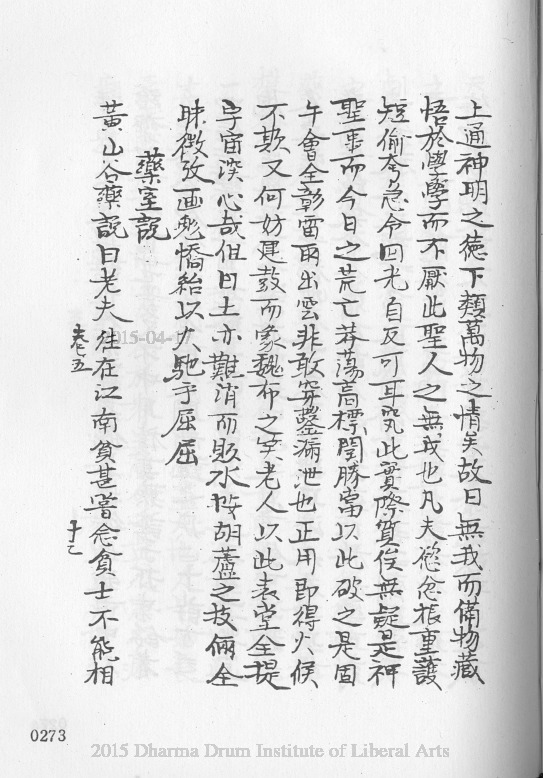 上通神明之德下類萬物之情矣故曰無我而備物藏
悟於學學而不厭此聖人之無我也凡夫慾忿根重護
短偷夸急令回光自反可耳究此實際質俟無疑是神
聖事而今日之荒亡莽蕩高標門勝當以此破之是固
午會全彰雷雨出雲非敢穿鑿漏泄也正用即得火候
不欺又何妨建教而象魏布之笑老人以此表堂全提
宇宙深心哉但日土亦難消而販水按胡蘆之技倆全
昧微孜画彪憍紿以火馳乎屈屈
藥室說
黃山谷藥說曰老夫往在江南貧甚嘗念貧士不能相
卷五
十二
2015-04-17
0273
2015 Dharma Drum Institute of Liberal Arts